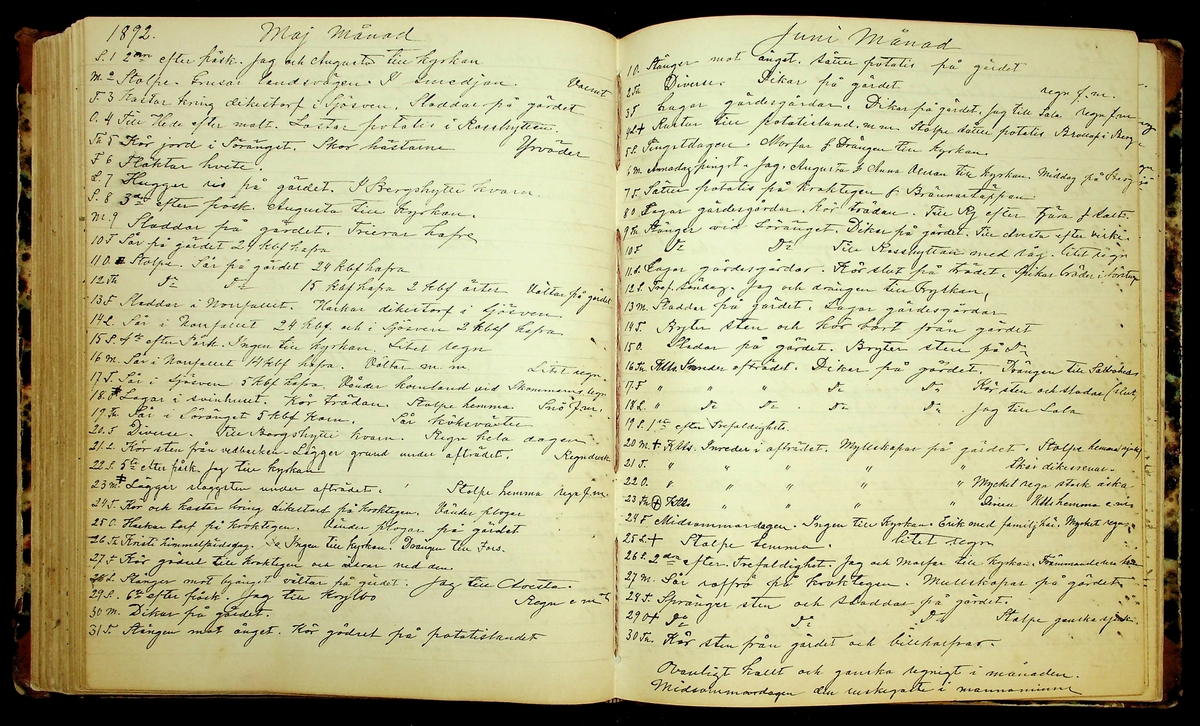 1892. Maj Månad
S. 1 2dn efter påsk. Jag och Augusta till Kyrkan
M. 2 Stolpe. Grusar landsvägen. I smedjan. Vackert
T. 3 Kastar kring dikestorf i Sjösven. Sladdar på gärdet
O. 4 Till Hede efter malt. Lastar potatis i Rosshyttan
Th 5 Kör jord i Söränget. Skor hästarne Yrväder
F 6 Fläktar hvete.
L. 7 Hugger ris på gärdet. I Bergshytte kvarn
S. 8 3de efter påsk. Augusta till Kyrkan.
M. 9 Sladdar på gärdet. Trierar hafre
10. T Sår på gärdet 24 kbf hafra
11 O. Stolpe. Sår på gärdet 24 kbf hafra
12 Th Do Do 15 kbf hafra 2 kbf ärter Vältar på gärdet
13. F Sladdar i Norrfallet. Harkar dikestorf i Sjösven
14 L. Sår i Norrfallet 24 kbf. och i Sjösven 2 kbf hafra
15 S. 4de efter Påsk. Ingen till Kyrkan. Litet regn
16 M. Sår i Norrfallet 4 kbf hafra. Vältar m m Litet regn
17 T. Sår i Sjösven 5 kbf hafra. Vänder kornland vid regn
18. O Lagar i svinhuset. Kör trädan. Stolpe hemma. Snö f.m.
19. Th Sår i Söränget 5 kbf Korn. Sår
20. F Diverse. Till Bergshytte kvarn. Regn hela dagen
21. L. Kör sten från vedbacken. Lägger grund under afträdet. Regndusk
22. S. 5te efter påsk. Jag till Kyrkan
23 M. Lägger under afträdet. Stolpe hemma regn f.m.
24 T. Kör och kastar kring dikestorf på kroktegen. Vänder plogar
25 O. Harkar torf på kroktegen. Vänder plogar på gärdet
26 Th Kristi himmelfärdsdag. Ingen till Kyrkan. Drängen till Fors.
27. F Kör gödsel till kroktegen och ned den
28 L. Stänger mot hänget vältar på gärdet. Jag till Avesta.
29. S. 6te efter påsk. Jag till Krylbo Regn e m
30 M. Dikar på gärdet.
31 T. Stängen mot änget. Kör gödsel på potatislandet
Juni Månad
1 O. Stänger mot änget. Sätter potatis på gärdet
2 Th Diverse. Dikar på gärdet regn f.m.
3 F Lagar gärdesgårdar. Dikar på gärdet. Jag till Sala. Regn f m
4 L + Runtar till potatisland, m.m. Stolpe sätter potatis
5 S. Pingstdagen. Morfar & Drängen till Kyrkan.
6 M. Annandag pingst. Jag, Augusta & Anna Ulrika till Kyrkan. Middag på Berg
7 T. Sätter potatis på kroktegen & Brännartäppan
8 O. Lagar gärdesgårdar. Kör trädan. Till Ry efter tjära & salt.
9 Th Stänger vid Söränget. Dikar på gärdet. Till Avesta efter virke
10. F Do Do Till Rosshyttan med råg. litet regn
11. L. Lagar gärdesgårdar. Kör slut på trädet. Spikar bräder i
12 S. Tref. Söndag. Jag och drängen till Kyrkan,
13 M. Sladdar på gärdet. Lagar gärdesgårdar.
14 T. Bryter sten och kör bort från gärdet
15 O. Sladdar på gärdet. Bryter sten på Do
16 Th Inreder afträdet. Dikar på gärdet. Drängen till Sallbohed
17. F " " " Do Do Kör sten och sladdar (slut)
18 L. " Do Do Do Do Jag till Sala
19 S. 1ste efter Trefaldighets.
20 M. + Inreder i afträdet. Myllskapar på gärdet. Stolpe hemma
21 T. " " " " " " Skär dikesrenar
22 O. " " " " " " Mycket regn stark åska
23 Th Hlls " " " " " hemma e. m.
24 F Midsommardagen. Ingen till Kyrkan. Erik med familj här. Mycket regn
25 L. + Stolpe hemma. litet regn
26 S. 2dra efter Trefaldighet. Jag och Morfar till Kyrkan.
27 M. Sår roffrö på kroktegen. Mullskapar på gärdet
28 T. Spränger sten och sladdar på gärdet.
29 O + Do Do Do Stolpe ganska sjuk
30 Th. Kör sten från gärdet och billharfvar.
Ovanligt kallt och ganska regnigt i månaden.
Midsommardagen den ruskigaste i mannaminne